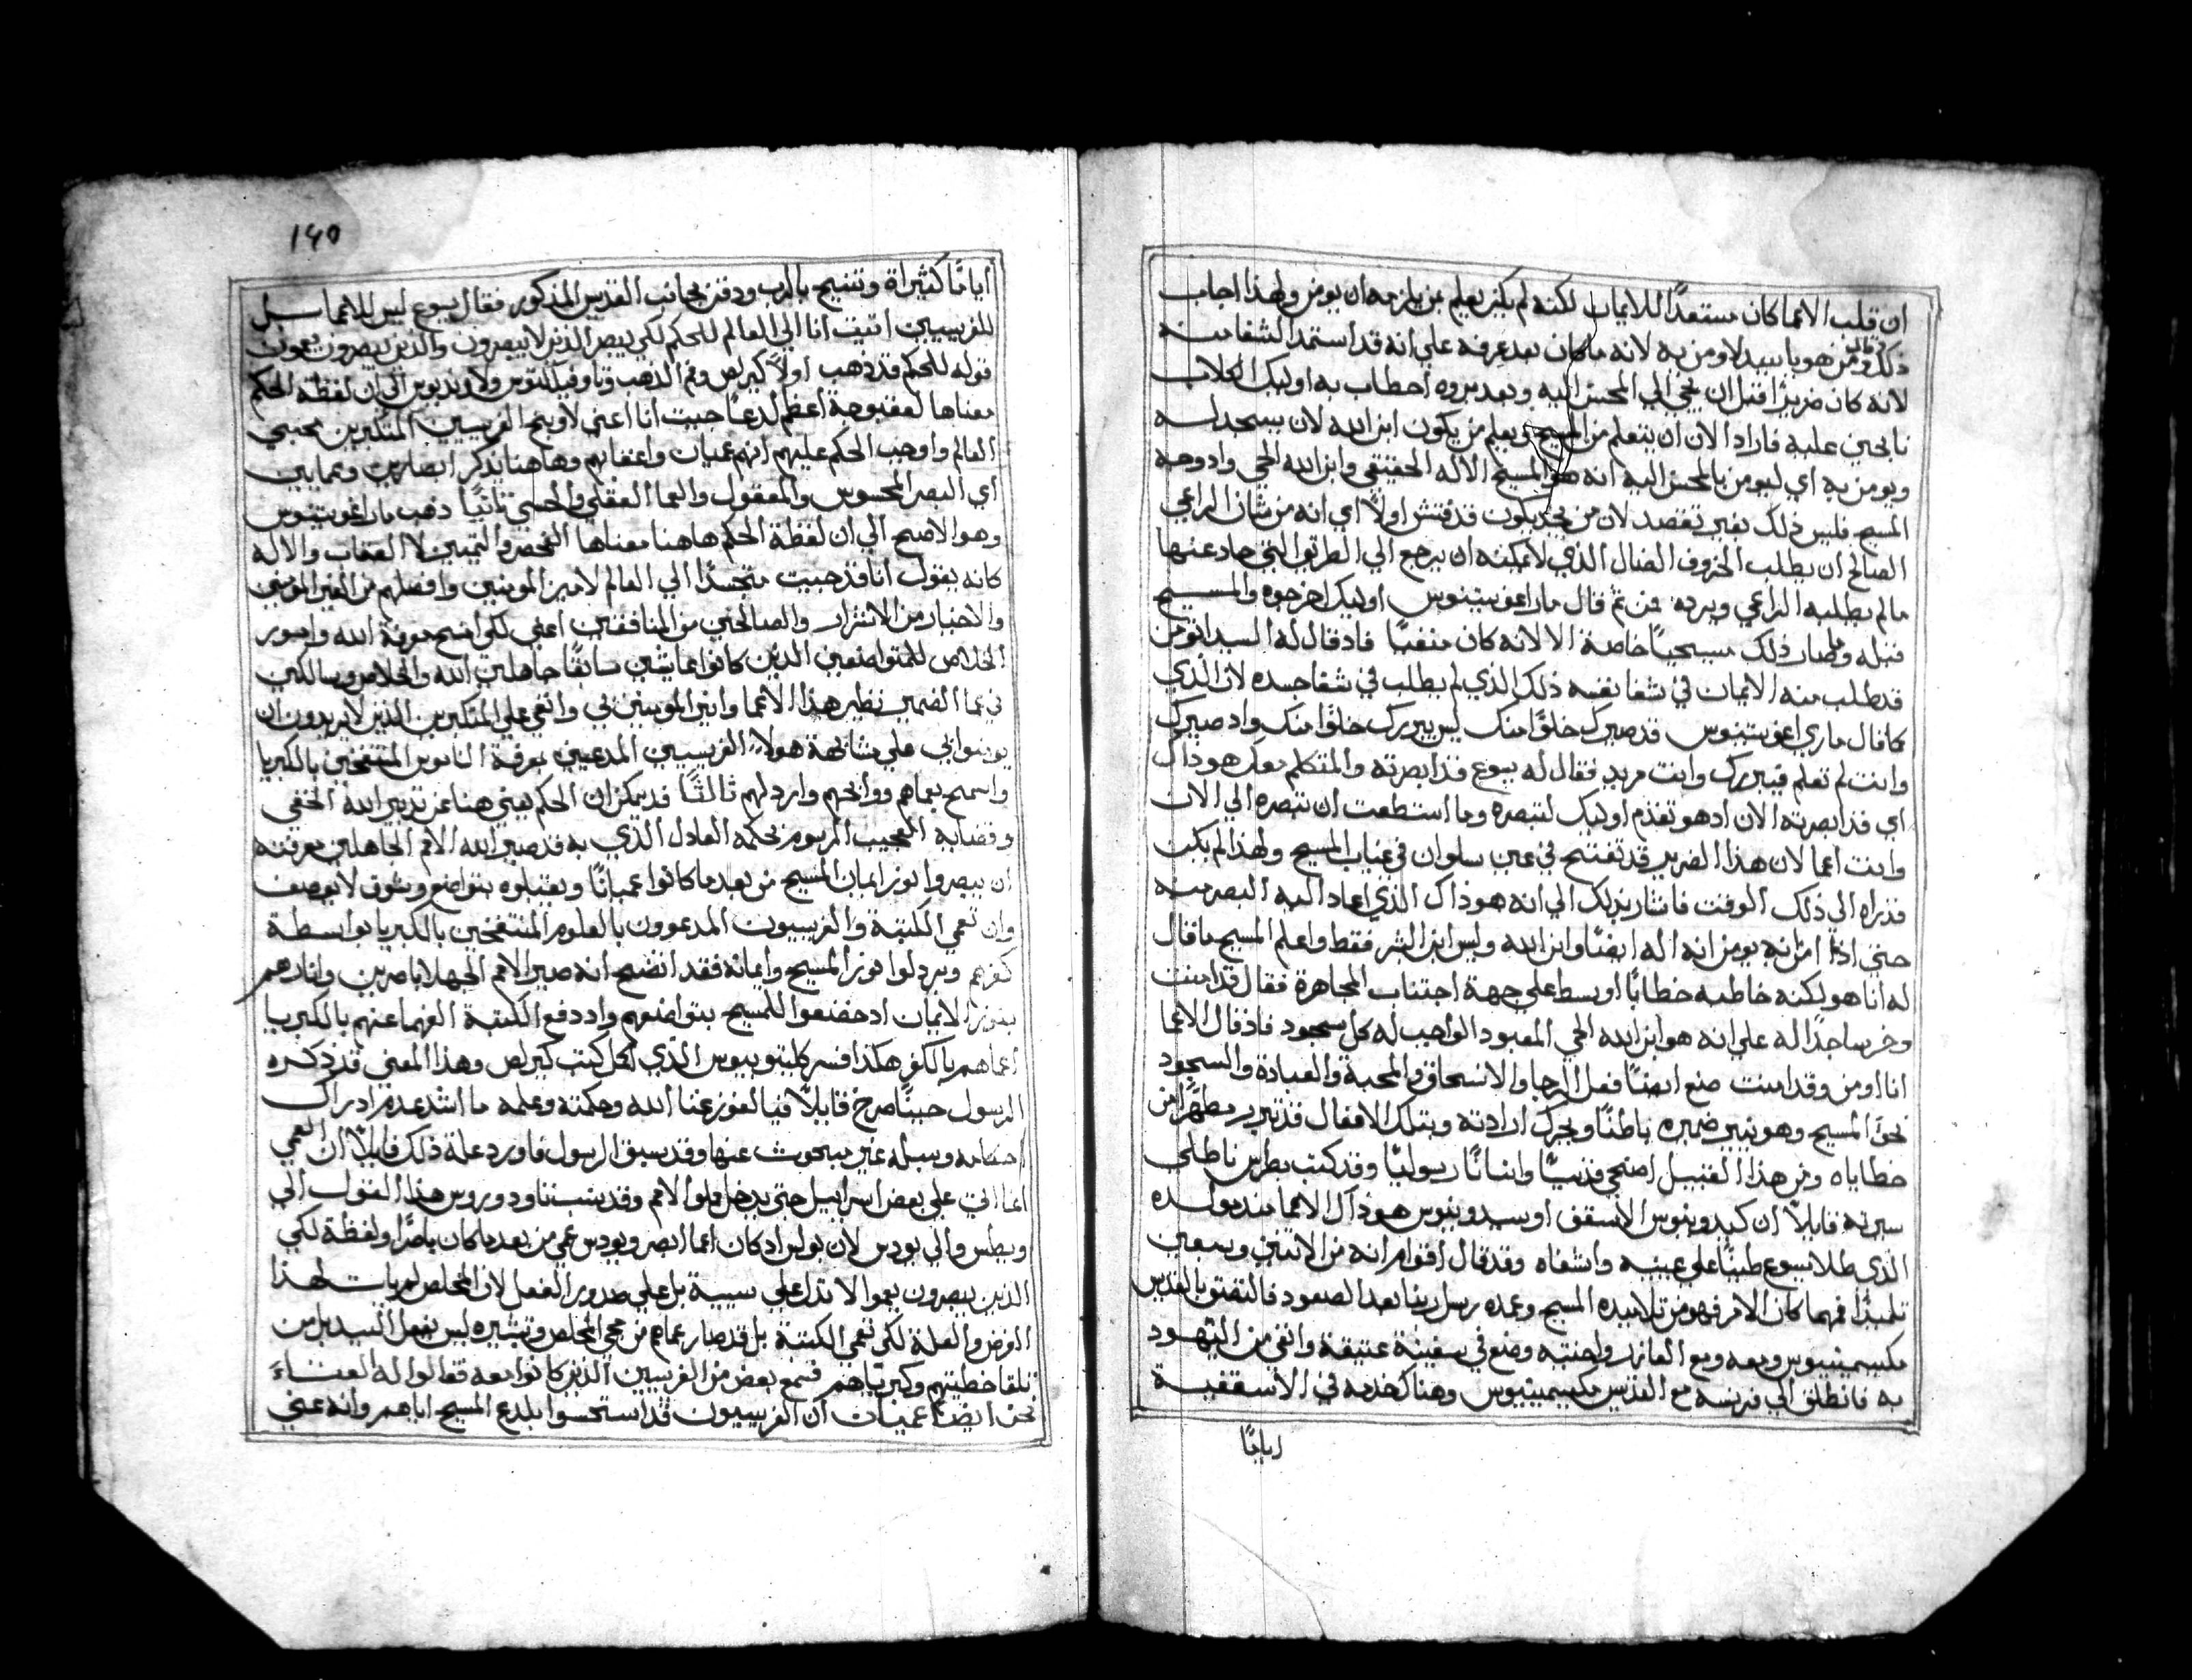 ان قلب الاعما كان مستعدًا للايمان لكنه لم يكن يعلم بمن يلزمه ان يومن ولهذا اجاب
ذلك وقال من هو يا سيد لاومن به لانه ما كان بعد عرفه علي انه قد استمد الشفا منه
لانه كان ضريرًا قبل ان يجي الي المحسن اليه وبعد بروه احطاب به اوليك الكلاب
نابحين عليه فاراد الان ان يتعلم من المسيح ويعلم من يكون ابن الله لان يسجد له
ويومن به اي ليومن بالمحسن اليه انه هو المسيح الاله الحقيقي وابن الله الحي وادوجه
المسيح فليس ذلك بغير تقصد لان من يجد يكون قد فتش اولاً اي انه من شان الراعي
الصالح ان يطلب الخروف الضال الذي لا يمكنه ان يرجع الي الطريق التي حاد عنها
مالم يطلبه الراعي ويرده فمن ثم قال مار اغوستينوس اوليك اخرجوه والمسيح
قبله وصار ذلك مسيحيًا خاصة الا لانه كان منفيًا فاد قال له السيد اتومن
قد طلب منه الايمان في شفا نفسه ذلك الذي لم يطلب في شفا جسده لان الذي
كما قال ماري اغوستينوس قد صيرك خلوًا منك ليس يبررك خلوًا منك واد صيرك
وانت لم تعلم فيبررك وانت مريد فقال له يسوع قد ابصرته والمتكلم معك هو ذاك
اي قد ابصرته الان اد هو تقدم اوليك لتبصره وما استطعت ان تبصره الي الان
وانت اعما لان هذا الضرير قد تفتح في عين سلوان في غياب المسيح ولهذا لم يكن
قد راه الي ذلك الوقت فاشار بذلك الي انه هو ذاك الذي اعاد اليه البصر منه
حتي اذا امن به يومن انه اله ايضًا وابن الله وليس ابن البشر فقط واعلم المسيح ما قال
له انا هو لكنه خاطبه خطابًا اوسط علي جهة اجتناب المجاهرة فقال قد امنت
وخر ساجدًا له علي انه هو ابن الله الحي المعبود الواجب له كل سجود فاذ قال الاعما
انا اومن وقد امنت صنع ايضًا فعل الرجا والانسحاق والمحبة والعبادة والسجود
نحو المسيح وهو ينير ضميره باطنًا ويحرك ارادته وبتلك الافعال قد تبرر مطهرًا من
خطاياه ومن هذا القبيل اضحي قديسًا وانسانًا رسوليًا وقد كتب بطرس ناطلي
سيرته قايلاً ان كيدونيوس الاسقف او سيدونيوس هو ذاك الاعما منذ مولده
الذي طلا يسوع طينًا علي عينيه واشفاه وقد قال اقوام انه من الاثنين وسبعين
تلميذًا فمهما كان الامر فهو من تلاميده المسيح وعمده رسل ربنا بعد الصعود فالتصق بالقديس
مكسيمينيوس ومعه ومع العازر واختيه وضع في سفينة عتيقة وانفي من اليهود
به فانطلق الي فرنسه مع القديس مكسيمينيوس وهناك خدمه في الاسقفية
اياما
١٤٥
ايامًا كثيراة وتنيح بالرب ودفن بجانب القديس المذكور فقال يسوع ليس للاعما بل
للفريسيين اتيت انا الي العالم للحكم لكي يبصر الذين لا يبصرون والذين يبصرون يعمون
قوله للحكم قد ذهب اولاً كيرلس وفم الذهب وثاوفيلكتوس ولاونديوس الي ان لفظة الحكم
معناها لعقوبة اعظم لدعًا جيت انا اعني لاوبخ الفريسيين المتكبرين محبي
العالم واوجب الحكم عليهم انهم عميان واعقابهم وهاهنا يذكر ابصارين وعمايين
اي البصر المحسوس والمعقول والعما العقلي والحسي ثانيًا ذهب مار اغوستينوس
وهو الاصح الي ان لفظة الحكم هاهنا معناها الفحص والتمييز لا العقاب والاله
كانه يقول انا قد جيت متجسدًا الي العالم لاميز المومنين وافصلهم من الغير المومنين
والاخيار من الاشرار والصالحين من المنافقين اعني لكي امنح معرفة الله وامور
الخلاص للمتواضعين الذين كانوا عايشين سابقًا جاهلين الله والخلاص وسالكين
في عما الضمير نظير هذا الاعما وانير المومنين بي وانفي علي المتكبرين الذين لا يريدون ان
يومنوا بي علي مشابهة هولاء الفريسيين المدعيين بمعرفة الناموس المنتفخين بالكبريا
واسمح بعماهم وواخهم وارد لهم ثالثًا قد يمكن ان الحكم يعني هنا عن تدبير الله الخفي
وقضايه العجيب المرسوم بحكمه العادل الذي به قد صير الله الامم الجاهلين معرفته
ان يبصروا نور ايمان المسيح من بعد ما كانوا عميانًا ويقبلوه بتواضع وشوق لا يوصف
وان تعمي الكتبة والفريسيون المدعوون بالعلوم المنتفخين بالكبريا بواسطة
كفرهم ويردلوا نور المسيح وايمانه فقد اتضح انه صير الامم الجهلا باصرين وانارهم
بنور الايمان اد خضعوا للمسيح بتواضعهم واد دفع الكتبة الفهما عنهم بالكبريا
اعماهم بالكفر هكذا فسر كليتوبيوس الذي كمل كتب كيرلس وهذا المعني قد ذكره
الرسول حينًا صرخ قايلاً فيا لغور غنا الله وحكمته وعلمه ما اشد عدم ادراك
احكامه وسبله غير مبحوث عنها وقد سبق الرسول فاورد علة ذلك قايلاً ان العمي
انما اتي علي بعض اسراييل حتي يدخل ملوا الامم وقد ينسب ثاودوروس هذا القول الي
وبطس والي بودس لان بولس اد كان اعما ابصر ويودس عمي من بعد ما كان باصرًا ولفظة لكي
الذين يبصرون يعموا لا تدل علي سببية بل علي صدور الفعل لان المخلص لم يات لهذا
الغرض والعلة لكي تعمي الكتبة بل قد صار عماهم من مجي المخلص وتبشيره ليس بفعل السيد بل من
تلقا خطيتهم وكبرياهم فسمع بعض من الفريسيين الذين كانوا معه فقالوا له العلنا
نحن ايضًا عميان ان الفريسيون قد استحسوا بلدع المسيح اياهم وانه عني